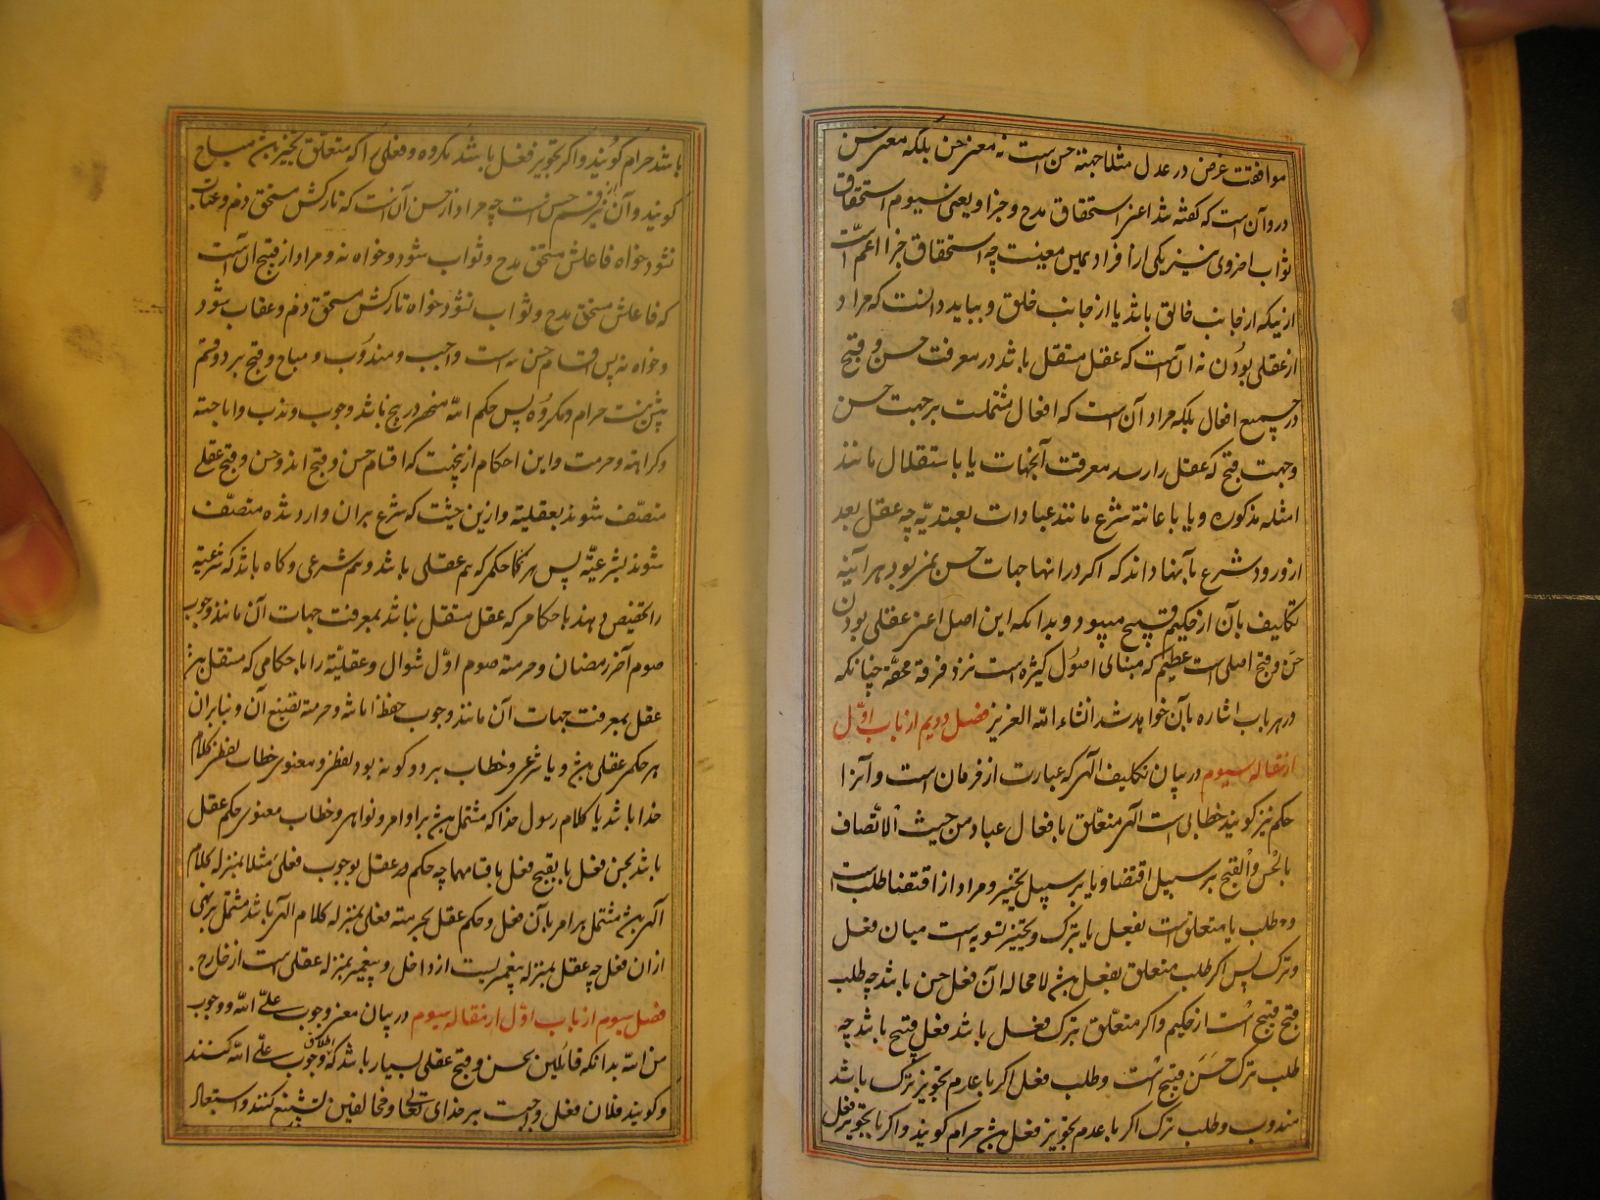 موافقت غرض در عدل مثلا جهة حسن است نه معنی حسن بلکه معنی حسن
درو آن است که گفته شد اعنی استحقاق مدح و جزا و معنی سیوم استحقاق
ثواب اخروی نیز یکی از افراد همین معنیست چه استحقاق جزا اعم است
از نیکه از جانب خالق باشد یا از جانب خلق و بباید دانست که مراد
از عقلی بودن نه آن است که عقل مستقل باشد در معرفت حسن و قبح
در جمیع افعال بلکه مراد آن است که افعال مشتملست بر جهت حسن
و جهت قبح که عقل را رسد معرفت آنجهات یا باستقلال مانند
امثله مذکوره و یا باعانة شرع مانند عبادات تعبدیّه چه عقل بعد
از ورود شرع بآنها داند که اگر در آنها جهات حسن نمی بود هر آینه
تکلیف بآن از حکیم قبیح میبود و بدانکه این اصل اعنی عقلی بودن
حسن و قبح اصلی است عظیم که مبنای اصول کثیره است نزد فرقۀ محقّه چنانکه
در هر باب اشاره بآن خواهد شد انشاء الله العزیز فصل دویم از باب اوّل
از مقاله سیوم در بیان تکلیف الهی که عبارت از فرمان است و آنرا
حکم نیز گویند خطابی است الهی متعلّق بافعال عباد من حیث الاتّصاف
بالحُسن و القبح بر سبیل اقتضا و یا بر سبیل تخییر و مراد از اقتضا طلب است
و طلب یا متعلق است بفعل یا بترک و تخییر تسویه است میان فعل
و ترک پس اگر طلب متعلق بفعل باشد لامحاله آن فعل حسن باشد چه طلب
قبح قبیح است از حکیم و اگر متعلّق بترک فعل باشد فعل قبیح باشد چه
طلب ترک حَسَن قبیح است و طلب فعل اگر با عدم تجویز ترک باشد
مندوب و طلب ترک اگر با عدم تجویز فعل باشد حرام گویند و اگر با تجویز فعل
باشد حرام گویند و اگر بتجویز فعل باشد مکروه و فعلی را که متعلّق تخییر باشد مباح
گویند و آن نیز از قسم حسن است چه مراد از حسن آن است که تارکش مستحق ذم و عقاب
نشود خواه فاعلش مستحق مدح و ثواب شود و خواه نه و مراد از قبح آن است
که فاعلش مستحق مدح و ثواب نشود خواه تارکش مستحق ذم و عقاب شود
و خواه نه پس اقسام حسن سه است واجب و مندوب و مباح و قبح بر دو قسم
بیش نیست حرام و مکروه پس حکم الله منحصر در پنج باشد وجوب و ندب و اباحة
و کراهة و حرمت و این احکام ازینجهت که اقسام حسن و قبح اند و حسن و قبح عقلی
متصّف شوند بعقلیة و ازین حیثیت که شرع بر آن وارد شده متصّف
شوند بشرعیّة پس هر یک حکم که هم عقلی باشد و هم شرعی و گاه باشد که شرعیة
را تخصیص دهند باحکامی که عقل مستقل نباشد بمعرفت جهات آن مانند وجوب
صوم آخر رمضان و حرمة صوم اوّل شوال و عقلیّة را باحکامی که مستقل باشد
عقل بمعرفت جهات آن مانند وجوب حفظ امانة و حرمة تضییع آن و بنابر آن
هر حکمی عقلی باشد و یا شرعی و خطاب بر دو گونه بود لفظی و معنوی خطاب لفظی کلام
خدا باشد یا کلام رسول خدا که مشتمل باشد بر اوامر و نواهی و خطاب معنوی حکم عقل
باشد بحسن فعل یا بقبح فعل باقسامهما چه حکم عقل بوجوب فعلی مثلا بمنزله کلام
الهی باشد مشتمل بر امر بآن فعل و حکم عقل بحرمة فعلی بمنزله کلام الهی باشد مشتمل بر نهی
از آن فعل چه عقل بمنزله پیغمبریست از داخل و پیغمبر بمنزله عقلی است از خارج
فصل سیوم از باب اوّل از مقاله سیوم در بیان معنی وجوب علی الله و وجوب
من الله بدانکه قائلین بحسن و قبح عقلی بسیار باشد که اطلاق وجوب علی الله کنند
و گویند فلان فعل واجبست بر خدای تعالی و مخالفین تشنیع کنند و استبعاد